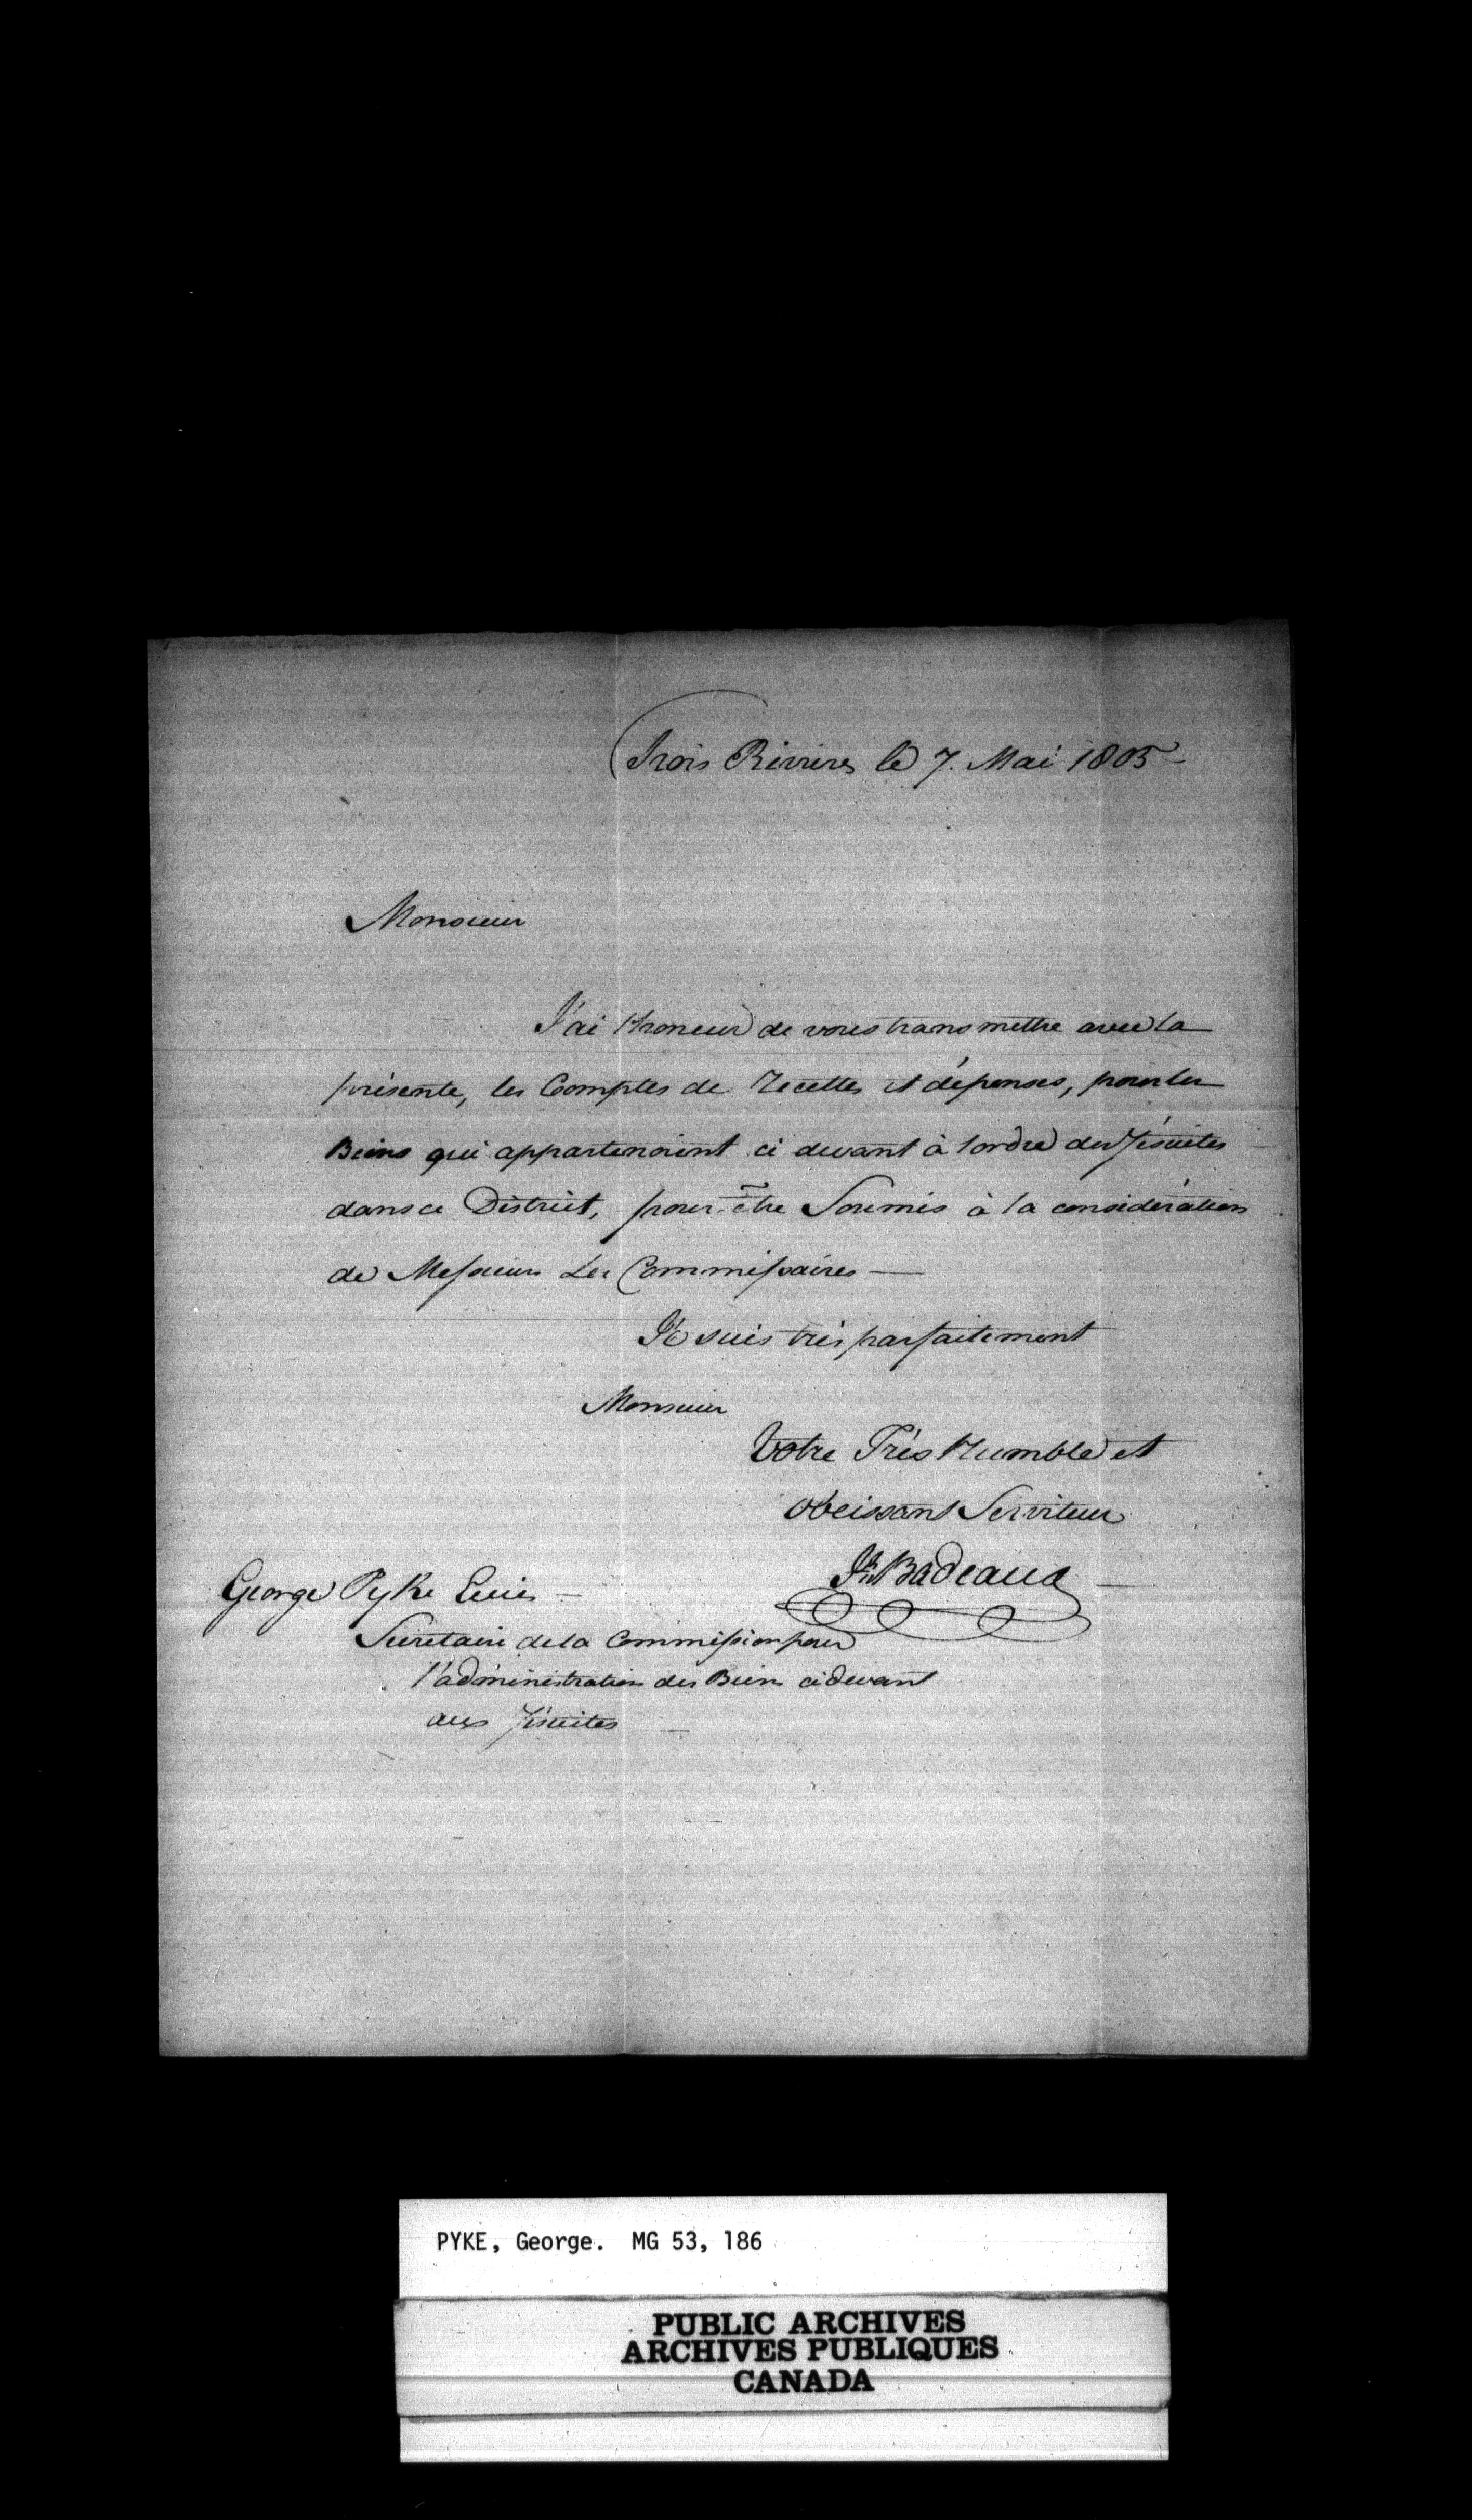 Trois Rivieres le 7. Mai 1805
Monsieur
J'ai l'honeur de vous transmettre avec la
présente, les Comptes de Recettes et dépenses, pour les
Biens qui appartenoient ci devant à l'ordre des Jésuites
dans ce District, pour être Soumis à la considération
de Messieurs Les Commissaires —
Je suis très parfaitement
Monsieur
Votre Très Humble et
obeissant Serviteur
Jh Badeaux
George Pyke Ecuier —
Secretaire de la Commission pour
l'administration des Biens ci devant
aux Jésuites —
PYKE, George. MG 53, 186
PUBLIC ARCHIVES
ARCHIVES PUBLIQUES
CANADA